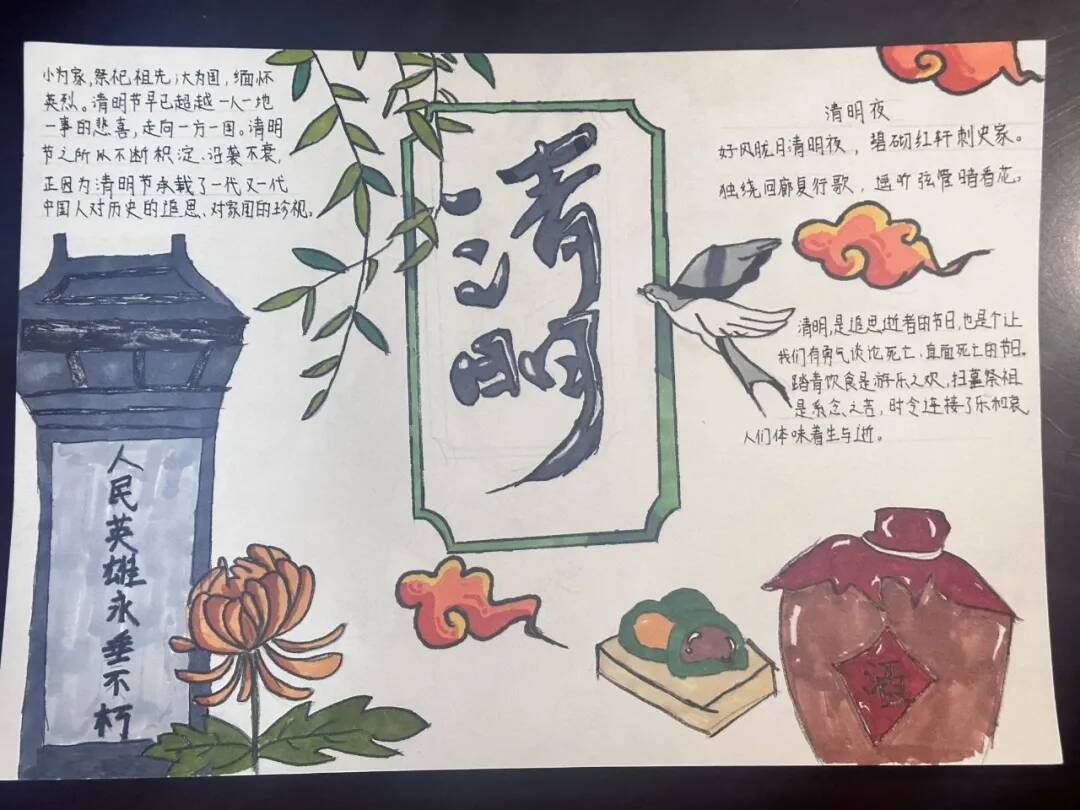 小为家,祭祀祖先;大为国,缅怀
英烈。清明节早已超越一人一地
一事的悲喜,走向一方一国。清明
节之所以不断积淀、沿袭不衰,
正因为清明节承载了一代又一代
中国人对历史的追思、对家国的珍视。
清明
清明夜
好风胧月清明夜,碧砌红轩刺史家。
独绕回廊复行歌,遥听弦管暗看花。
清明,是追思逝者的节日,也是个让
我们有勇气谈论死亡、直面死亡的节日。
踏青饮食是游乐之欢,扫墓祭祖
是系念之苦,时令连接了乐和哀
人们体味着生与逝。
人民英雄永垂不朽
酒